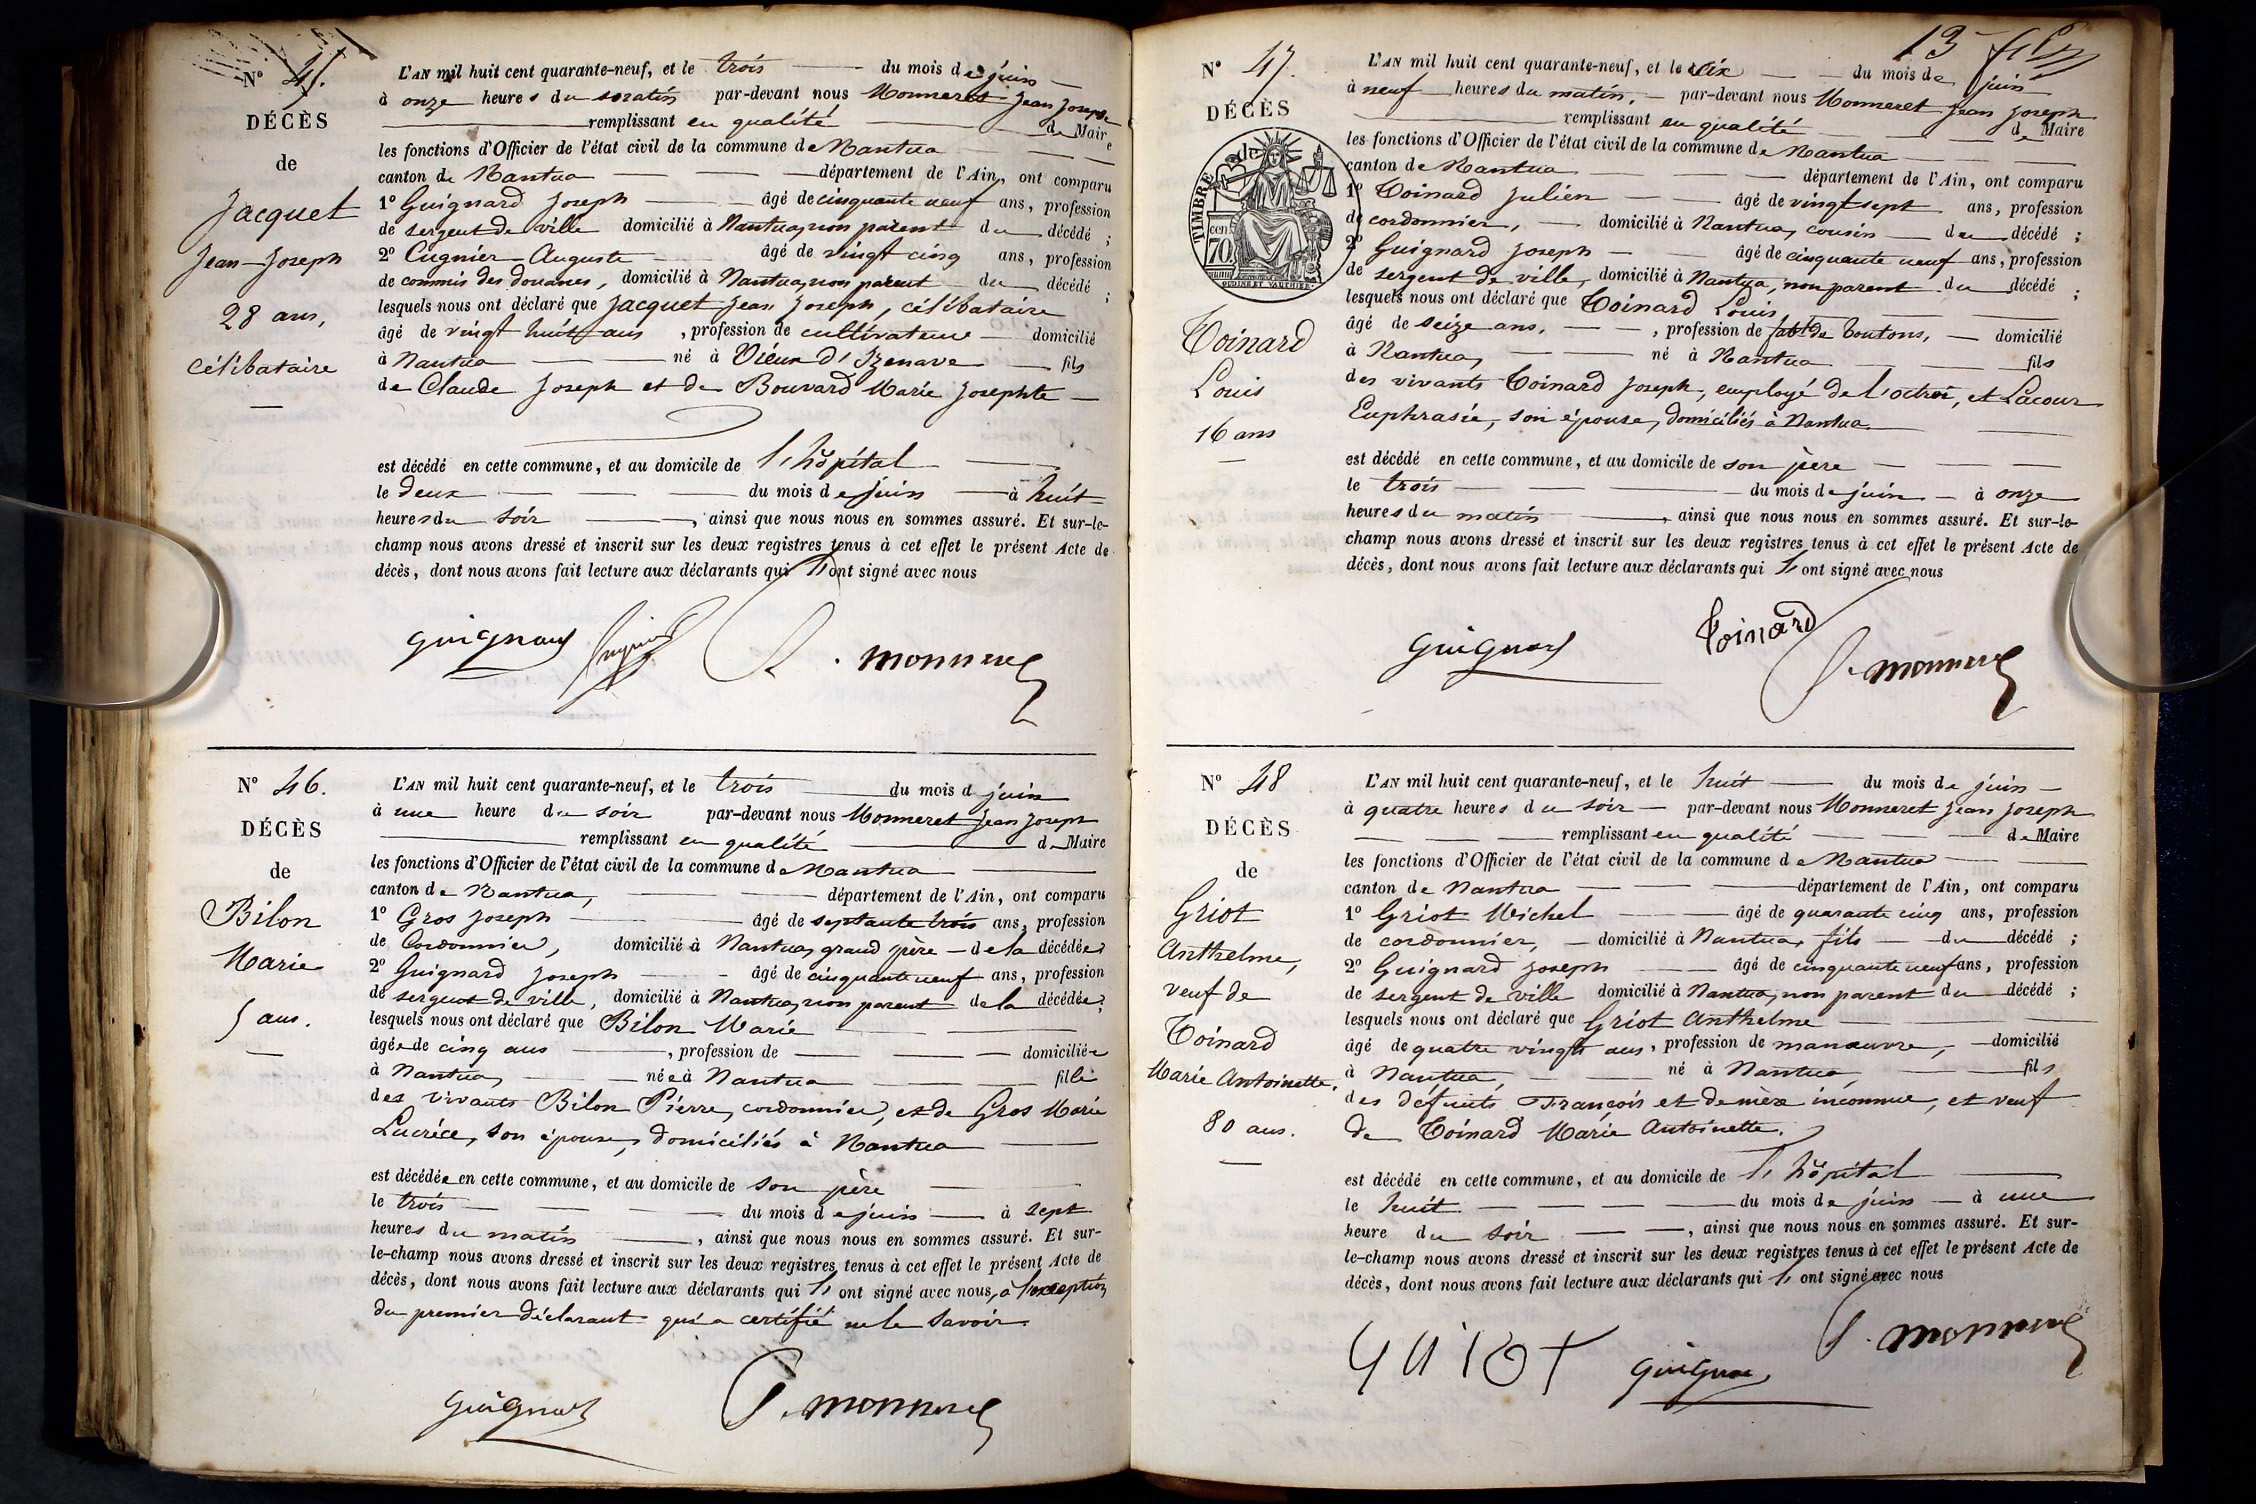 N° 45.
DÉCÈS
de
Jacquet
Jean-Joseph
28 ans,
célibataire
L'AN mil huit cent quarante-neuf, et le trois du mois de juin
à onze heures du matin par-devant nous Monneret Jean Joseph
remplissant en qualité de Maire
les fonctions d'Officier de l'état civil de la commune de Nantua
canton de Nantua département de l'Ain, ont comparu
1° Guignard Joseph âgé de cinquante neuf ans, profession
de sergent de ville domicilié à Nantua, non parent du décédé ;
2° Cugnier Auguste âgé de vingt cinq ans, profession
de commis des douanes, domicilié à Nantua, non parent du décédé ;
lesquels nous ont déclaré que Jacquet Jean Joseph, célibataire
âgé de vingt huit ans, profession de cultivateur domicilié
à Nantua né à Vieux d'Izenave fils
de Claude Joseph et de Bouvard Marie Josephte
est décédé en cette commune, et au domicile de l'hôpital
le deux du mois de juin à huit
heures du soir, ainsi que nous nous en sommes assuré. Et sur-le-
champ nous avons dressé et inscrit sur les deux registres tenus à cet effet le présent Acte de
décès, dont nous avons fait lecture aux déclarants qui ont signé avec nous
Guignard J. Monneret
N° 46.
DÉCÈS
de
Bilon
Marie
5 ans.
L'AN mil huit cent quarante-neuf, et le trois du mois d juin
à une heure du soir par-devant nous Monneret Jean Joseph
remplissant en qualité de Maire
les fonctions d'Officier de l'état civil de la commune de Nantua
canton de Nantua, département de l'Ain, ont comparu
1° Gros Joseph âgé de septante trois ans, profession
de Cordonnier, domicilié à Nantua, grand père de la décédée
2° Guignard Joseph âgé de cinquante neuf ans, profession
de sergent de ville, domicilié à Nantua, non parent de la décédée ;
lesquels nous ont déclaré que Bilon Marie
âgée de cinq ans, profession de domiciliée
à Nantua, née à Nantua fille
des vivants Bilon Pierre, cordonnier, et de Gros Marie
Lucrèce, son épouse, domiciliés à Nantua
est décédée en cette commune, et au domicile de son père
le trois du mois de juin à sept
heures du matin, ainsi que nous nous en sommes assuré. Et sur-
le-champ nous avons dressé et inscrit sur les deux registres tenus à cet effet le présent Acte de
décès, dont nous avons fait lecture aux déclarants qui ont signé avec nous, à l'exception
du premier déclarant qui a certifié ne le savoir.
Guignard J. Monneret
13
N° 47.
DÉCÈS
TIMBRE
cen
70
OUDINÉ ET VAUTHIER
Toinard
Louis
16 ans
L'AN mil huit cent quarante-neuf, et le six du mois de juin
à neuf heures du matin, par-devant nous Monneret Jean Joseph
remplissant en qualité de Maire
les fonctions d'Officier de l'état civil de la commune de Nantua
canton de Nantua département de l'Ain, ont comparu
1° Toinard Julien âgé de vingt sept ans, profession
de cordonnier, domicilié à Nantua, cousin du décédé ;
2° Guignard Joseph âgé de cinquante neuf ans, profession
de sergent de ville, domicilié à Nantua, non parent du décédé ;
lesquels nous ont déclaré que Toinard Louis,
âgé de seize ans, profession de fabt de boutons, domicilié
à Nantua, né à Nantua fils
des vivants Toinard Joseph, employé de l'octroi, et Lacour
Euphrasie, son épouse, domiciliés à Nantua
est décédé en cette commune, et au domicile de son père
le trois du mois de juin à onze
heures du matin, ainsi que nous nous en sommes assuré. Et sur-le-
champ nous avons dressé et inscrit sur les deux registres tenus à cet effet le présent Acte de
décès, dont nous avons fait lecture aux déclarants qui ont signé avec nous
Guignard Toinard J. Monneret
N° 48
DÉCÈS
de
Griot
Anthelme,
veuf de
Toinard
Marie Antoinette.
80 ans.
L'AN mil huit cent quarante-neuf, et le huit du mois de juin
à quatre heures du soir par-devant nous Monneret Jean Joseph
remplissant en qualité de Maire
les fonctions d'Officier de l'état civil de la commune de Nantua
canton de Nantua département de l'Ain, ont comparu
1° Griot Michel âgé de quarante cinq ans, profession
de cordonnier, domicilié à Nantua, fils du décédé ;
2° Guignard Joseph âgé de cinquante neuf ans, profession
de sergent de ville domicilié à Nantua, non parent du décédé ;
lesquels nous ont déclaré que Griot Anthelme
âgé de quatre vingts ans, profession de manœuvre, domicilié
à Nantua, né à Nantua, fils
des défunts François et de mère inconnue, et veuf
de Toinard Marie Antoinette.
est décédé en cette commune, et au domicile de l'hôpital
le huit du mois de juin à une
heure du soir, ainsi que nous nous en sommes assuré. Et sur-
le-champ nous avons dressé et inscrit sur les deux registres tenus à cet effet le présent Acte de
décès, dont nous avons fait lecture aux déclarants qui ont signé avec nous
Griot Guignard J. Monneret